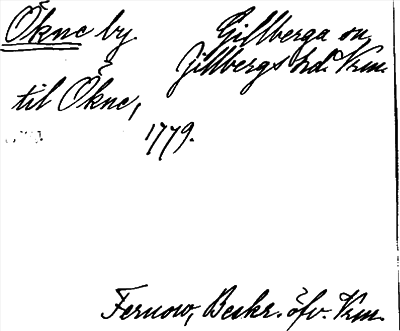 Ökne by Gillberga sn
Gillbergs hd. Vrm.
til Ökne,
1779.
Fernow, Beskr. öfv. Vrm.